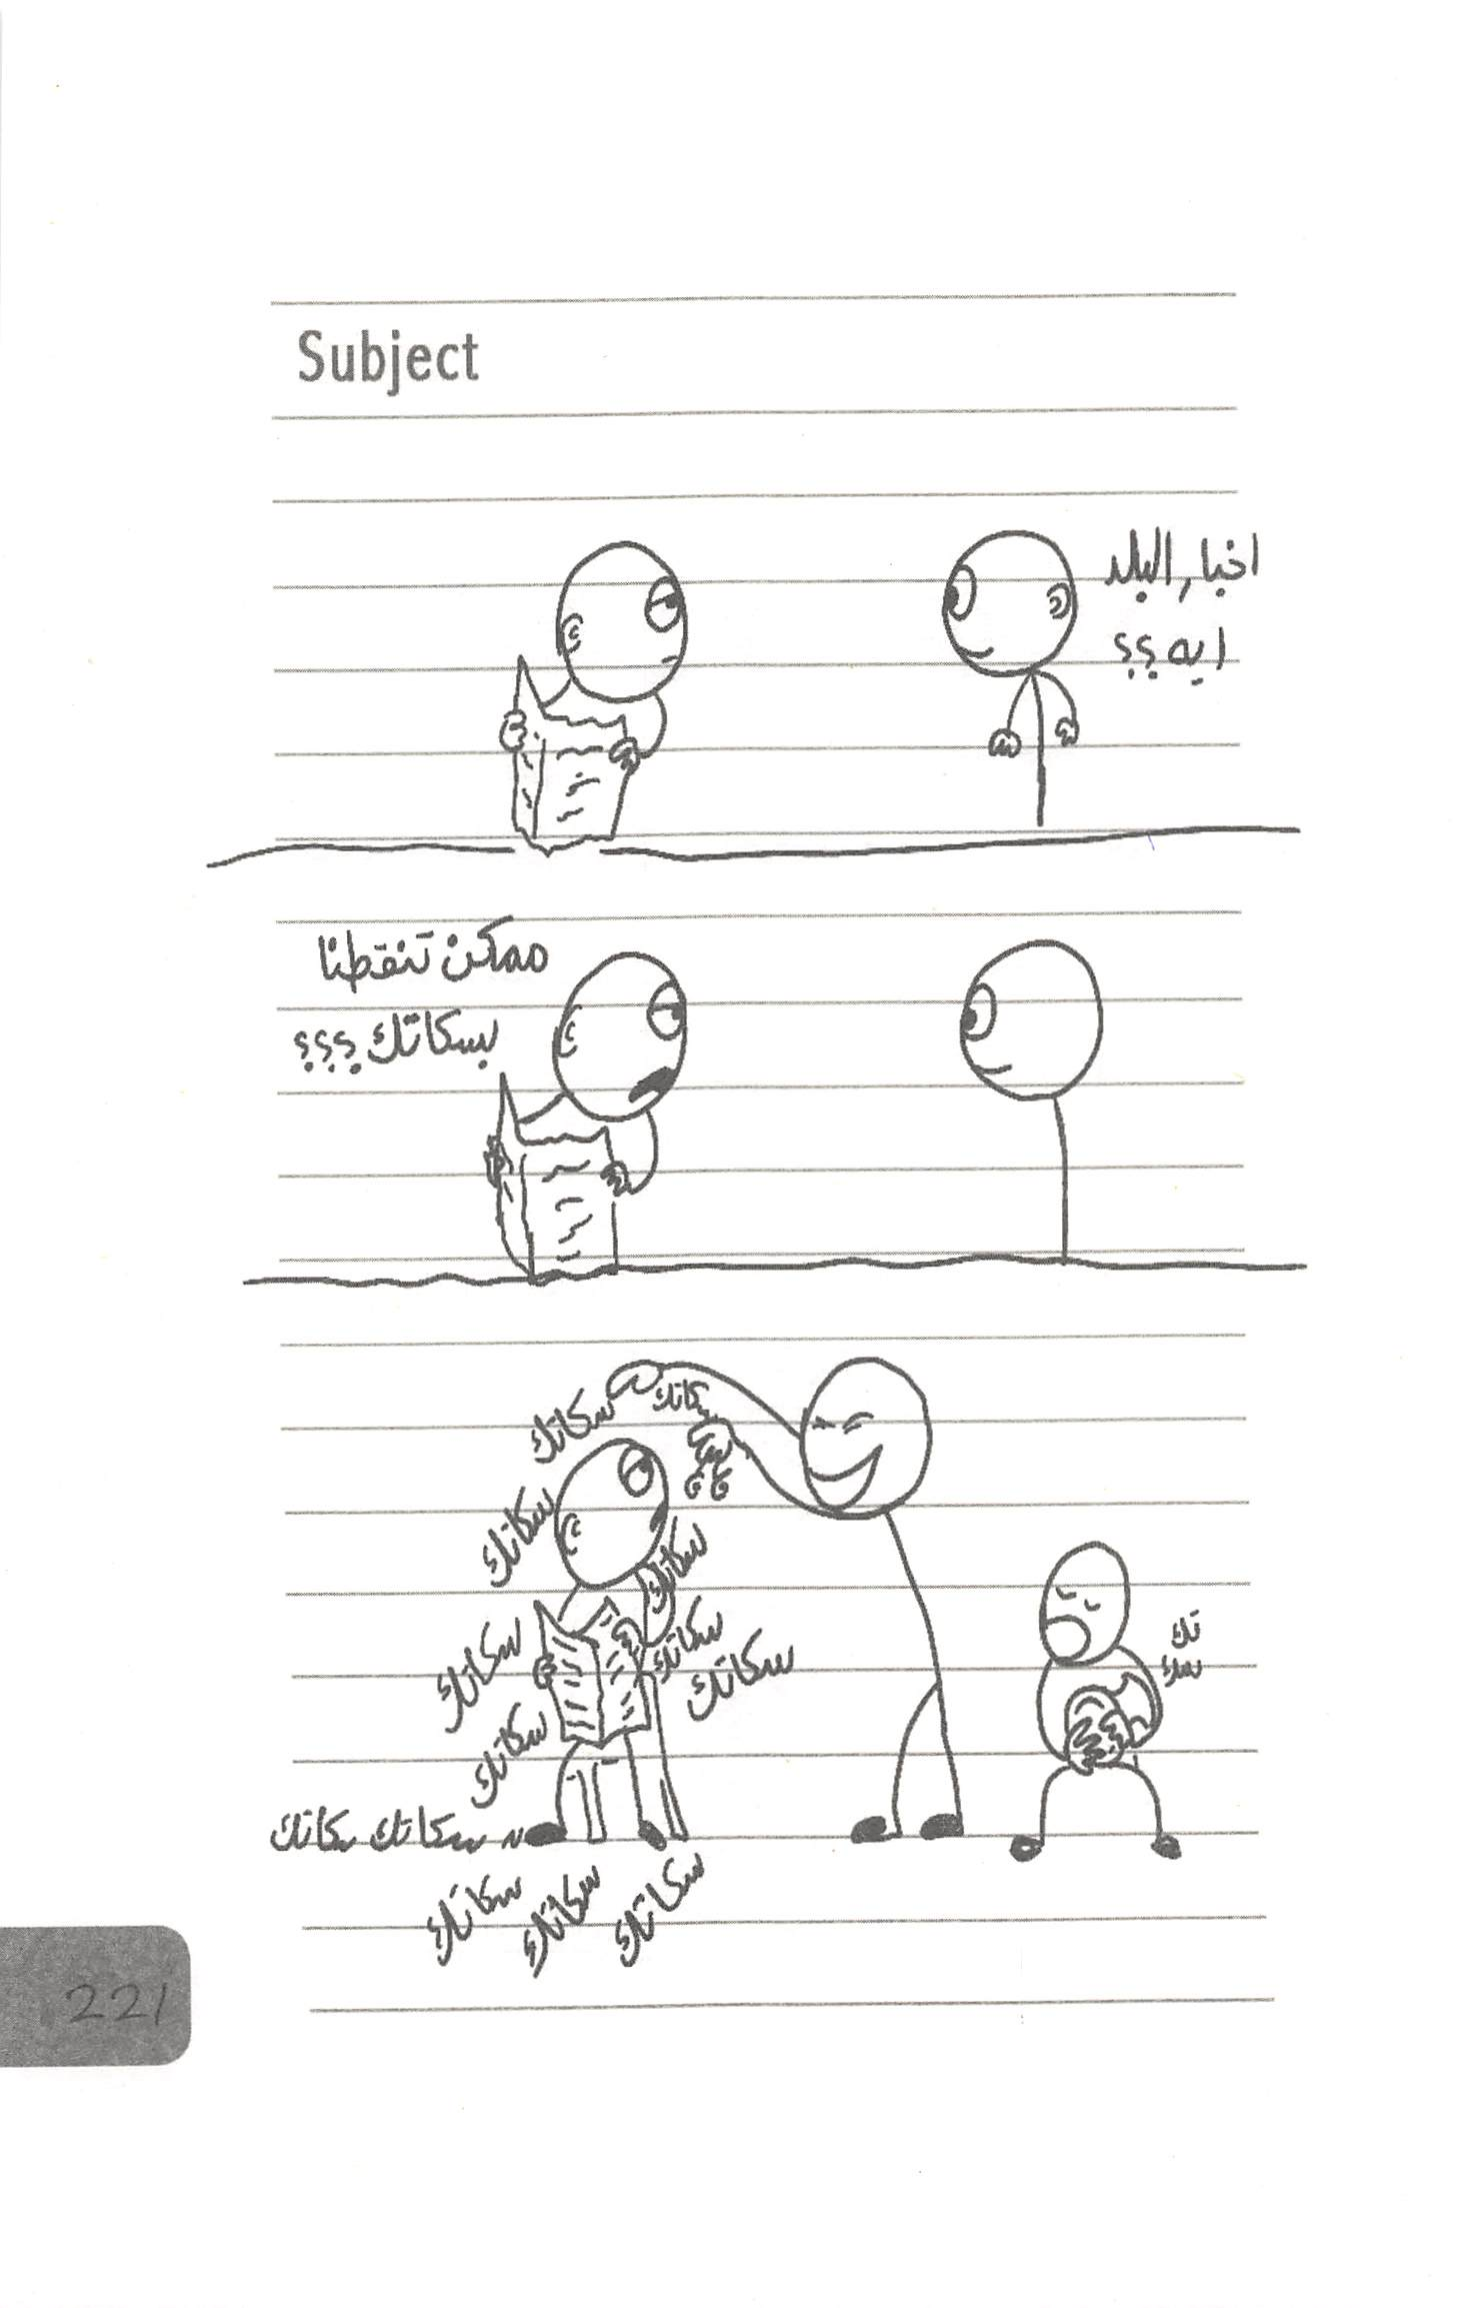 Subject
اخبار البلد
ايه ؟؟
ممكن تنقطنا
بسكاتك ؟؟؟
سكاتك
سكاتك
سكاتك
سكاتك
سكاتك
سكاتك
سكاتك
سكاتك
سكاتك سكاتك
سكاتك سكاتك سكاتك
تك
تك
221